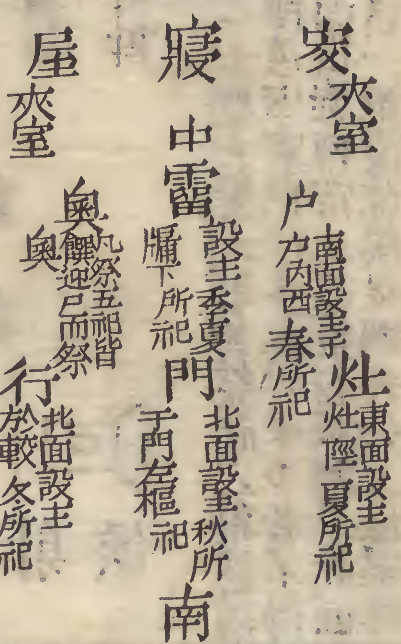 夾室
户
南面設主于
户内西
春所祀
灶
東面設主
灶陘
夏所祀
寢
中霤
設主
牖下
季夏
所祀
門
北面設主
于門左樞
秋所
祀
南
屋
夾室
奥
凡祭五祀皆
饌迎已而祭
奥
行
北面設主
於較
冬所祀